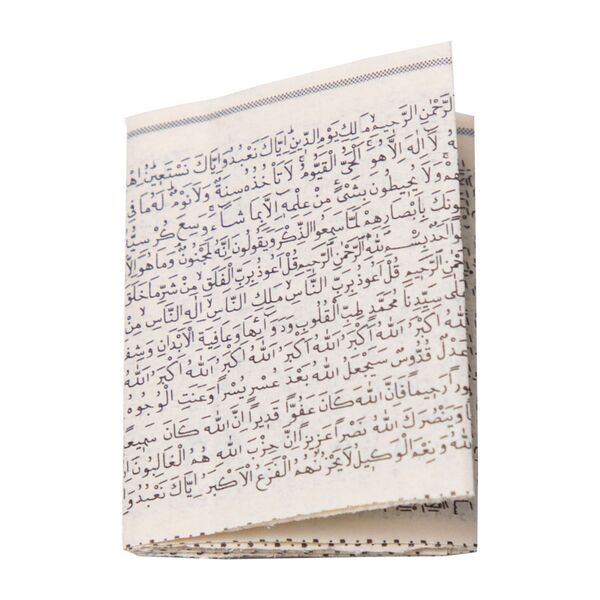 الرَّحْمٰنِ الرَّحِيْمِ مٰلِكِ يَوْمِ الدِّيْنِ اِيَّاكَ نَعْبُدُ وَاِيَّاكَ نَسْتَعِيْنُ
لَا اِلٰهَ اِلَّا هُوَ الْحَيُّ الْقَيُّوْمُ لَا تَأْخُذُهُ سِنَةٌ وَلَا نَوْمٌ لَهُ مَا فِي
وَلَا يُحِيْطُوْنَ بِشَيْئٍ مِنْ عِلْمِهِ اِلَّا بِمَا شَاءَ وَسِعَ كُرْسِيُّهُ
بِاَبْصَارِهِمْ لَمَّا سَمِعُوا الذِّكْرَ وَيَقُوْلُوْنَ اِنَّهُ لَمَجْنُوْنٌ وَمَا هُوَ اِلَّا
اللهِ الرَّحْمٰنِ الرَّحِيْمِ قُلْ اَعُوْذُ بِرَبِّ الْفَلَقِ مِنْ شَرِّ مَا خَلَقَ
الرَّحِيْمِ قُلْ اَعُوْذُ بِرَبِّ النَّاسِ مَلِكِ النَّاسِ اِلٰهِ النَّاسِ مِنْ
سَيِّدِنَا مُحَمَّدٍ طِبِّ الْقُلُوْبِ وَدَوَائِهَا وَعَافِيَةِ الْاَبْدَانِ وَشِفَا
اللهُ اَكْبَرُ اللهُ اَكْبَرُ اللهُ اَكْبَرُ اللهُ اَكْبَرُ اللهُ
عَدْلٌ قُدُّوْسٌ سَيَجْعَلُ اللهُ بَعْدَ عُسْرٍ يُسْرًا وَعَنَتِ الْوُجُوْهُ
رَحِيْمًا فَاِنَّ اللهَ كَانَ عَفُوًّا قَدِيْرًا اِنَّ اللهَ كَانَ سَمِيْعًا
وَيَنْصُرَكَ اللهُ نَصْرًا عَزِيْزًا اِنَّ حِزْبَ اللهِ هُمُ الْغَالِبُوْنَ
وَنِعْمَ الْوَكِيْلُ لَا يَحْزُنُهُمُ الْفَزَعُ الْاَكْبَرُ اِيَّاكَ نَعْبُدُ وَاِ